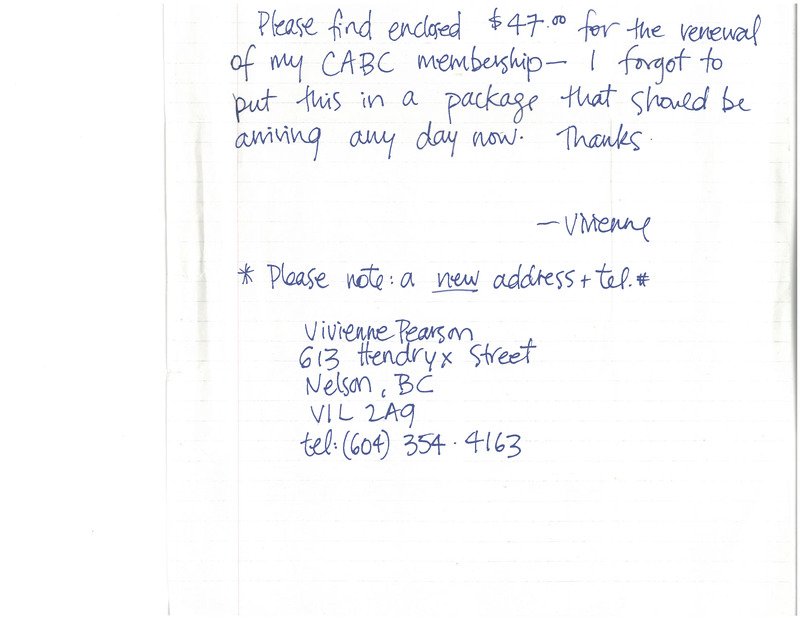 Please find enclosed $47.00 for the renewal
of my CABC membership— I forgot to
put this in a package that should be
arriving any day now. Thanks.
—Vivienne
* Please note: a new address + tel. #
Vivienne Pearson
613 Hendryx Street
Nelson, BC
V1L 2A9
tel: (604) 354·4163